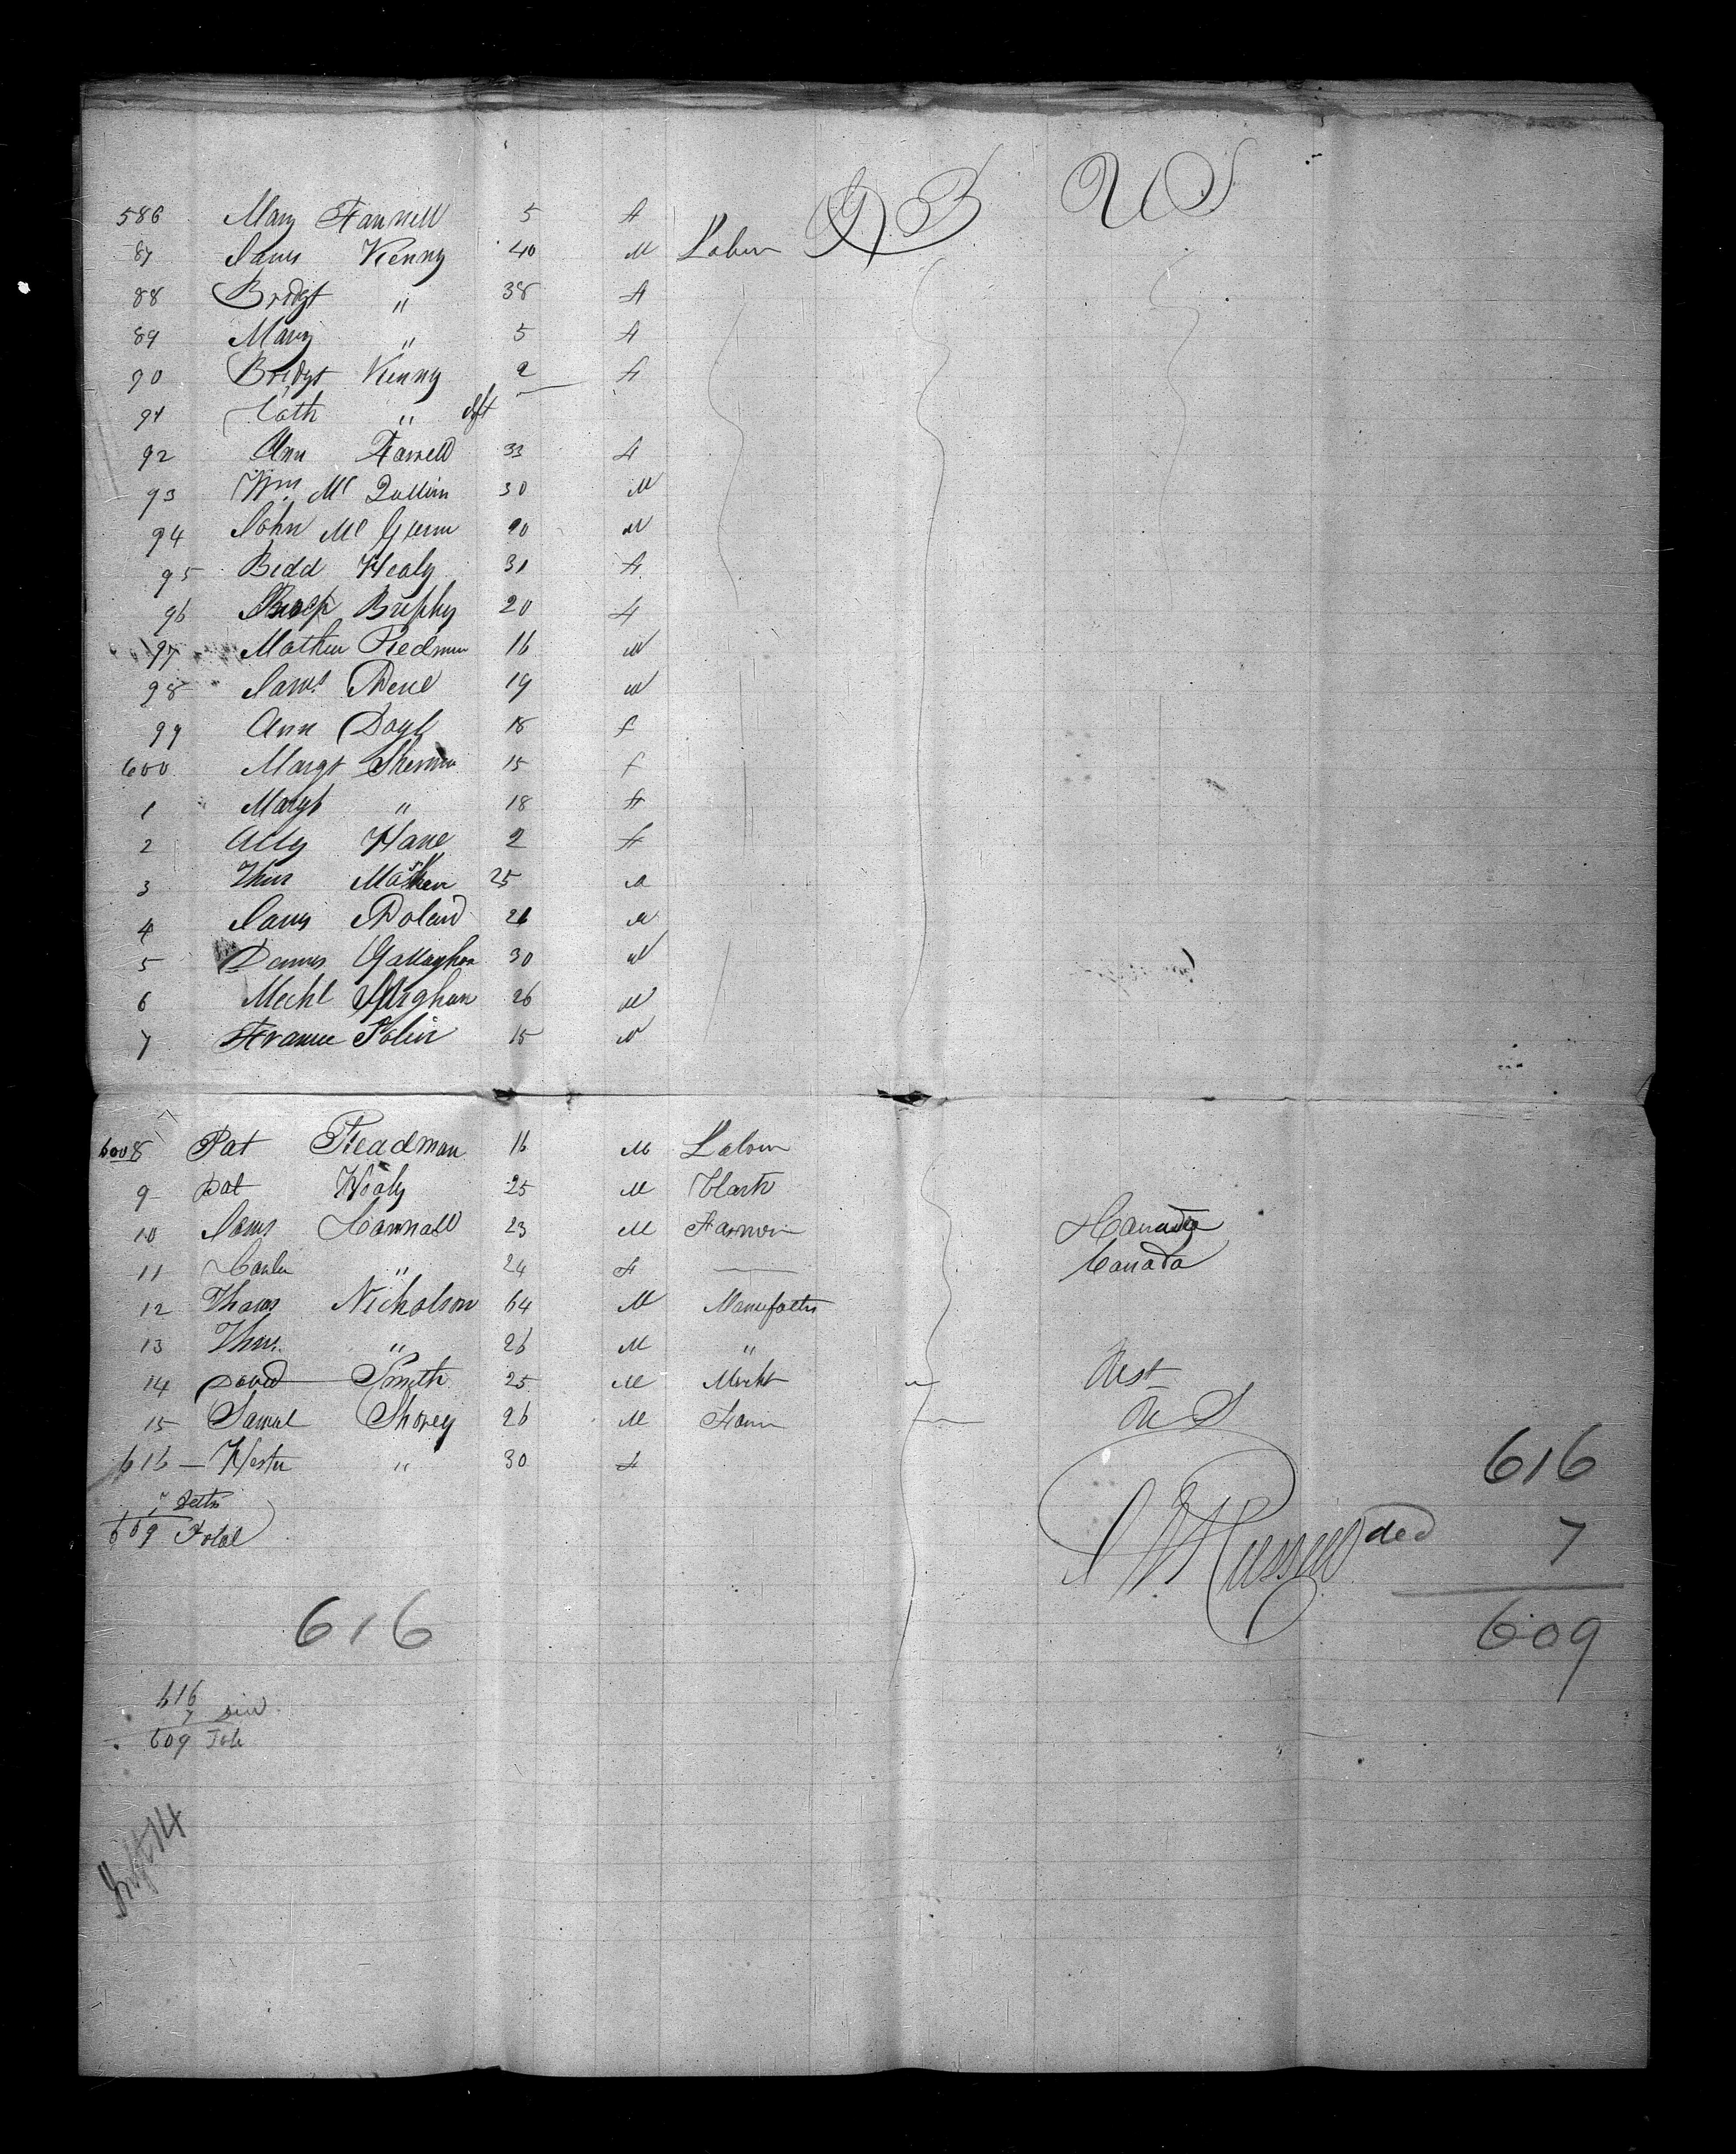 586 Mary Farrell 5 f G B U S
87 James Kenny 40 M Labor
88 Bridgt " 38 f
89 Mary " 5 f
90 Bridgt Kenny 2 f
91 Cath " Inft
92 Ann Farrell 33 f
93 Wm Mc Quillin 30 M
94 John Mc 20 M
95 Bidd Healy 31 f
96 Brophy 20 f
97 Mathew Redmon 16 M
98 James 19 M
99 Ann Doyl 18 f
600 Margt 15 f
1 Margt " 18 f
2 Ally Hane 2 f
3 Thos 25 M
4 James Boland 26 M
5 Dennis Gallagher 30 M
6 Michl 26 M
7 Tobin 15 M
6008 Pat Readman 16 M Labor
9 Pat Healy 25 M Clark
10 James Connall 23 M Farmer Canada
11 " 24 f — Canada
12 Thoms Nicholson 64 M Manufactur
13 Thos. " 26 M "
14 David Smith 25 M Mercht
15 Samul Shorey 26 M Farm U S
616 — Hester " 30 f
7 Deths
609 Total
616
ded 7
609
J W Russell
616
616
7 Died
609 Tole
Inft 14